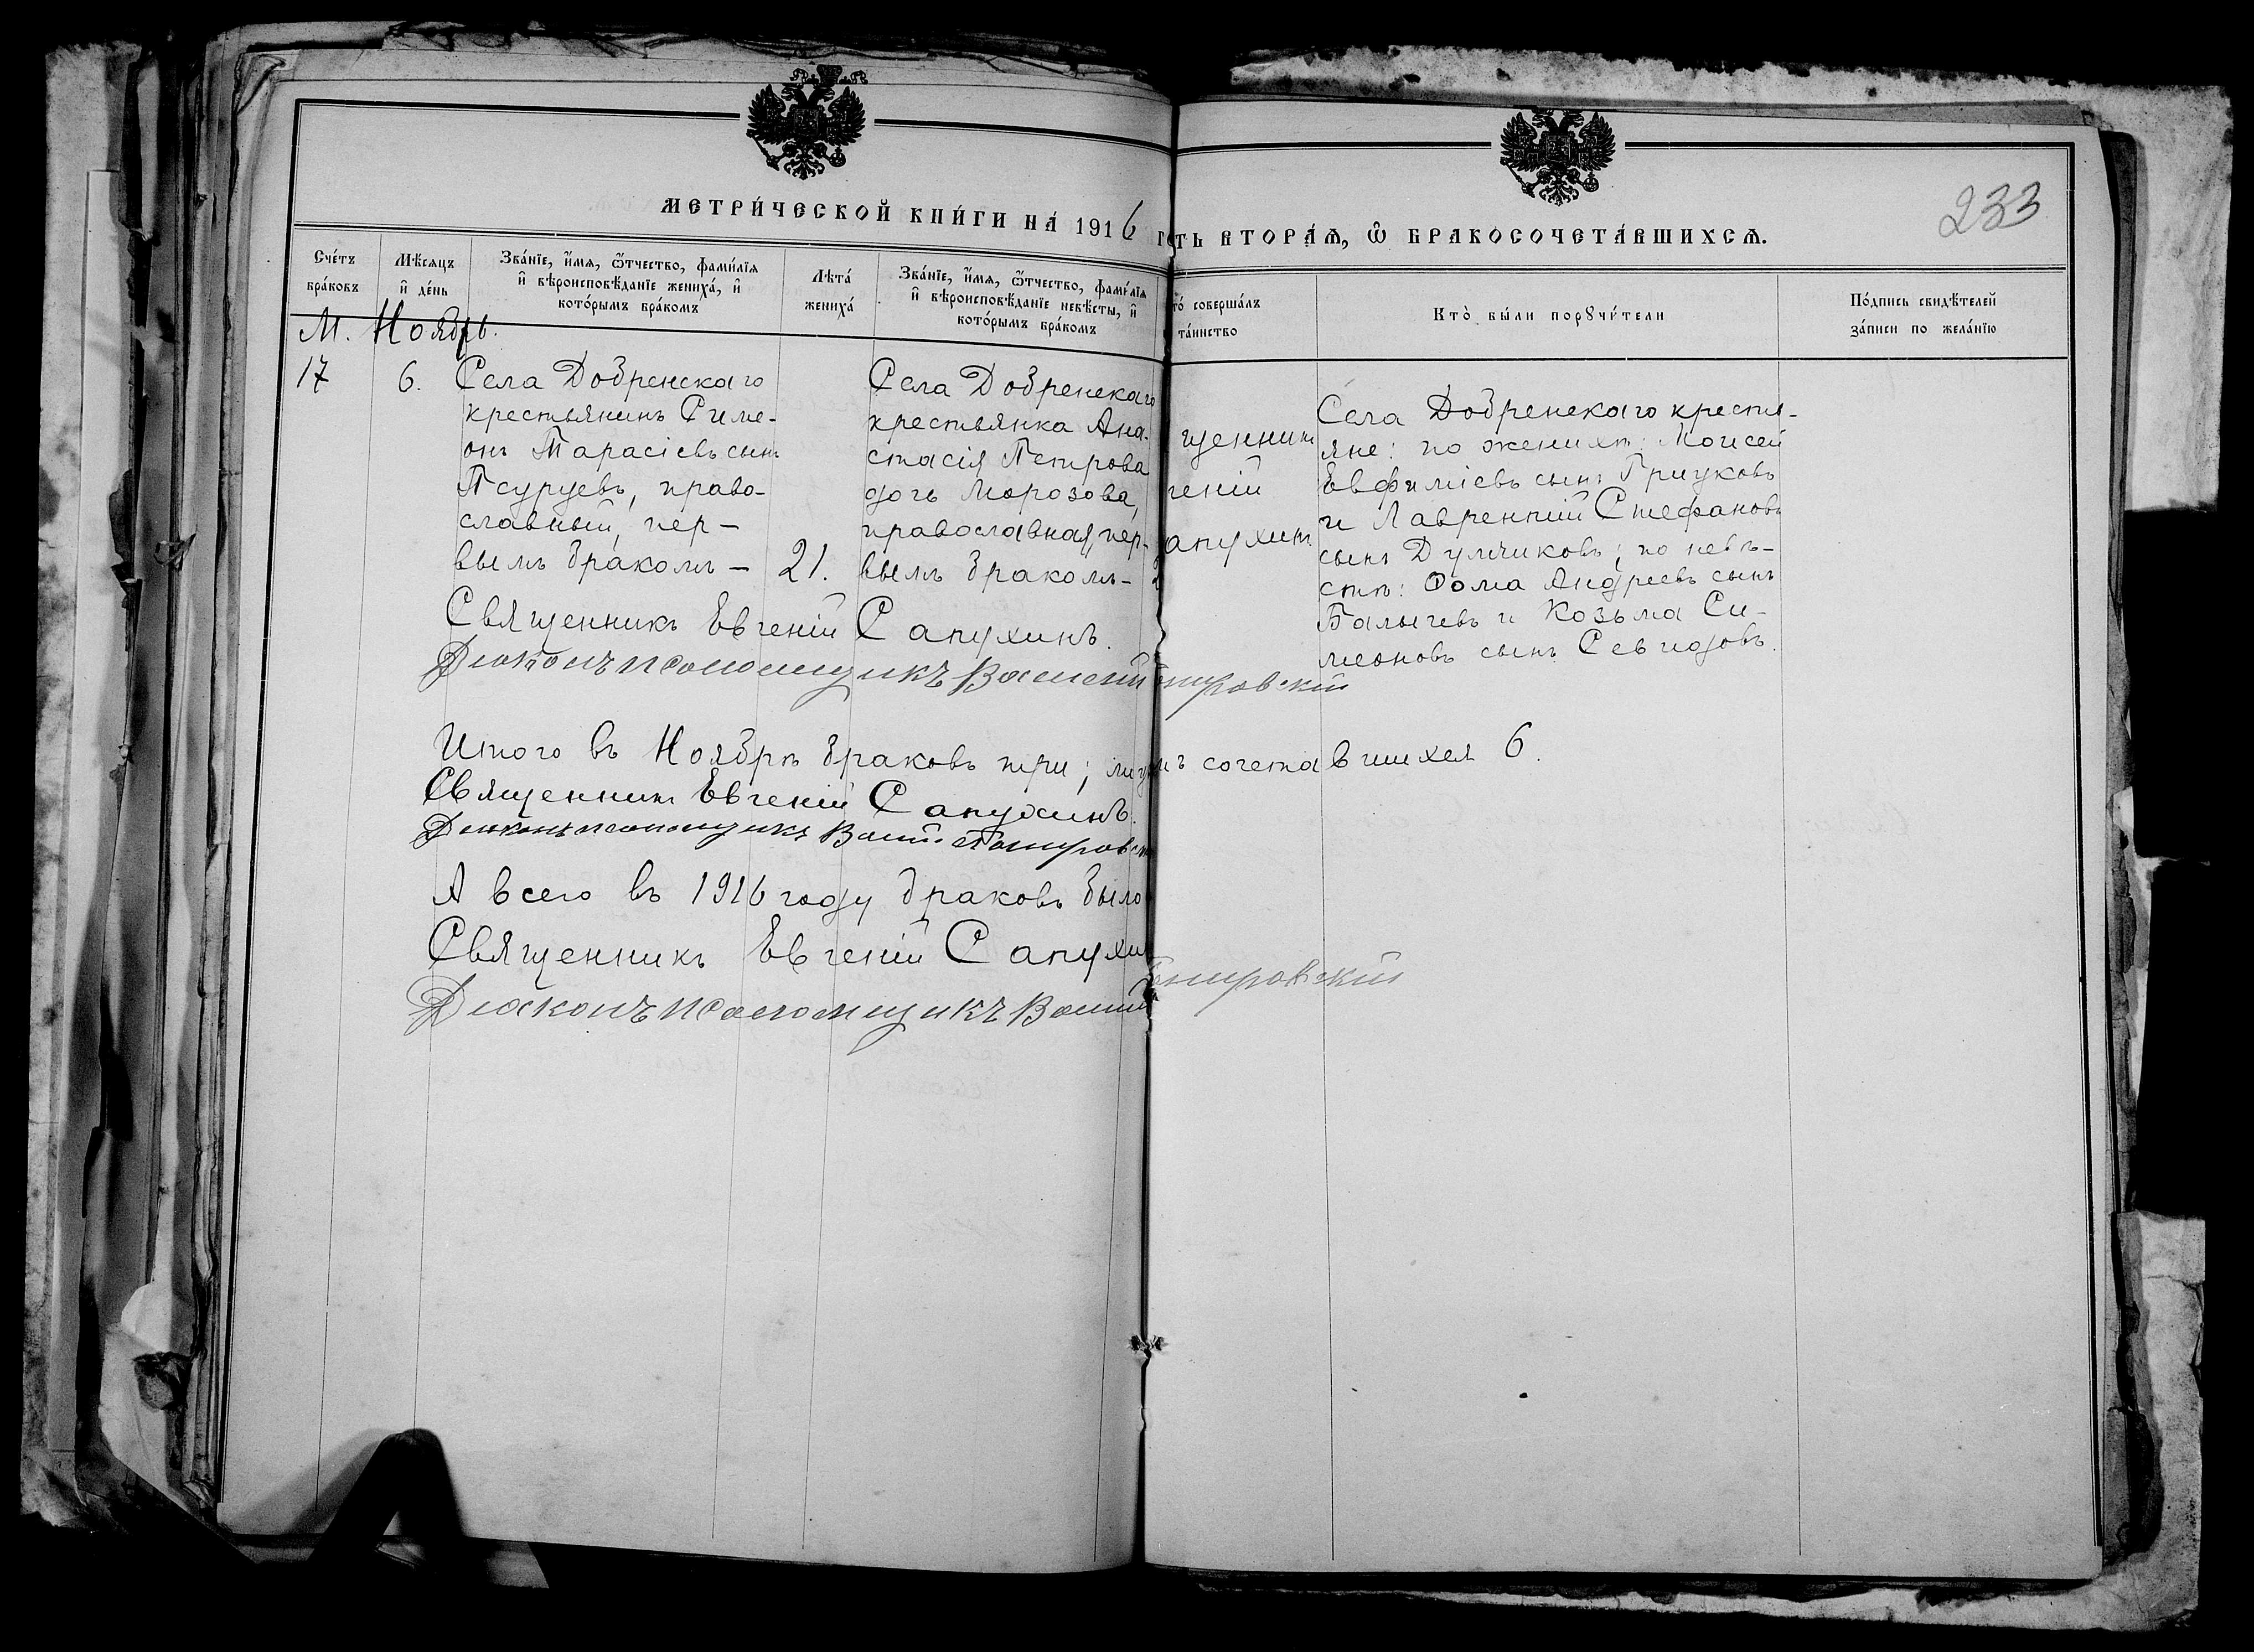 МЕТРИ́ЧЕСКОЙ КНИ́ГИ НА́ 1916
ть ВТОРА́Ѧ, Ѽ БРАКОСОЧЕТА́ВШИХСѦ.
233
Сче́тъ
бра́ковъ
Мѣ́сяцъ
и҆ де́нь
Зва́нїе, и҆́мѧ, ѻ҆́тчество, фами́лїѧ
и҆ вѣроисповѣ́данїе жениха́, и҆
кото́рымъ бра́комъ
Лѣта́
жениха́
Зва́нїе, и҆́мѧ, ѻ҆́тчество, фами́лїѧ
и҆ вѣроисповѣ́данїе невѣ́сты, и҆
кото́рымъ бра́комъ
то́ соверша́лъ
та́инство
Кто̀ бы́ли порꙋчи́тели
По́дпись свидѣ́телей
за́писи по жела́нїю
М. Ноябрь.
17
6.
Села Добренскаго
крестьянинъ Симе-
онъ Тарасіевъ сынъ
Псурцевъ, право-
славный, пер-
вымъ бракомъ –
21.
Села Добренскаго
крестьянка Ана-
стасія Петрова
дочь Морозова,
православная, пер-
вымъ бракомъ –
щенникъ
геній
апухинъ
Села Добренскаго крестья-
яне: по женихѣ: Моисей
Евфиміевъ сынъ Грицковъ
и Лаврентій Стефановъ
сынъ Думчиковъ; по невѣ-
стѣ: Ѳома Андреевъ сынъ
Балычевъ и Козьма Си-
меоновъ сынъ Севидовъ.
Священникъ Евгеній Сапухинъ.
Діаконъ псаломщикъ Василій
Итого въ Ноябрѣ браковъ три; лицъ сочетавшихся 6.
Священникъ Евгеній Сапухинъ.
Діаконъ псаломщикъ
А всего въ 1916 году браковъ было
Священникъ Евгеній Сапухи
Діаконъ псаломщикъ Василій